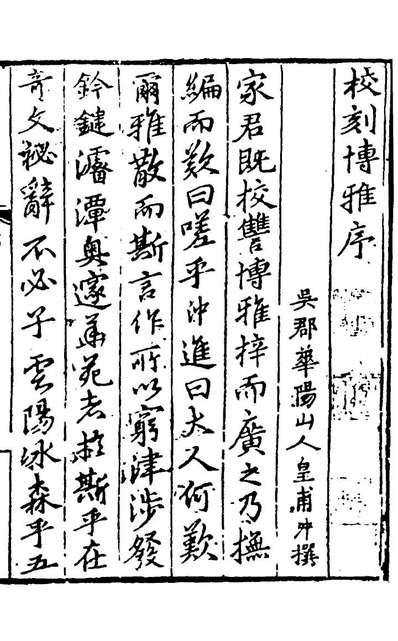 校刻博雅序
吳郡華陽山人皇甫冲撰
家君既校讐博雅梓而廣之乃撫
編而歎曰嗟乎沖進曰大人何歎
爾雅散而斯言作所以窮津涉發
鈐鍵濬潭奥邃苑者於斯乎在
奇文祕辭不必子雲陽冰森乎五